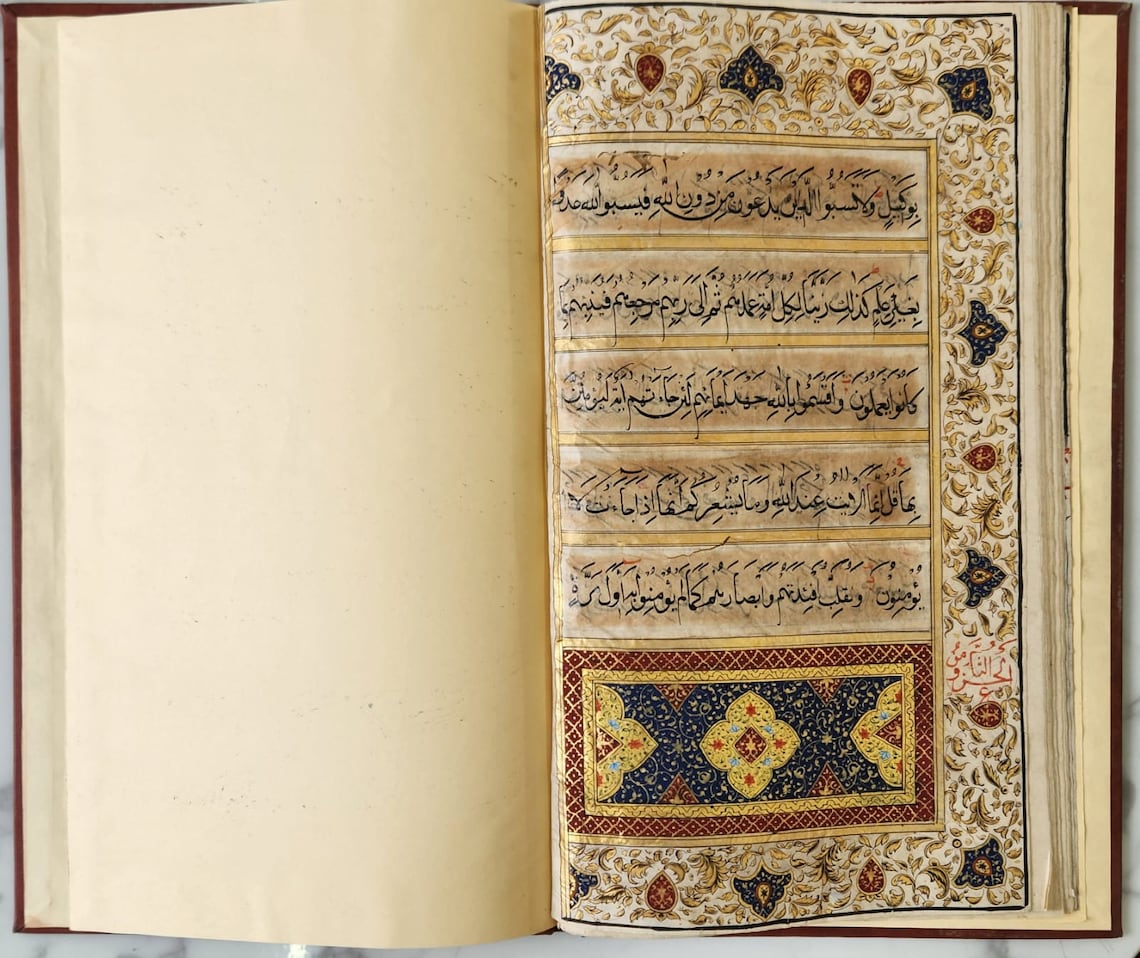 بِوَكِيلٍ وَلَا تَسُبُّوا الَّذِينَ يَدْعُونَ مِنْ دُونِ اللَّهِ فَيَسُبُّوا اللَّهَ عَدْوًا
بِغَيْرِ عِلْمٍ كَذَلِكَ زَيَّنَّا لِكُلِّ أُمَّةٍ عَمَلَهُمْ ثُمَّ إِلَى رَبِّهِمْ مَرْجِعُهُمْ فَيُنَبِّئُهُمْ بِمَا
كَانُوا يَعْمَلُونَ وَأَقْسَمُوا بِاللَّهِ جَهْدَ أَيْمَانِهِمْ لَئِنْ جَاءَتْهُمْ آيَةٌ لَيُؤْمِنُنَّ
بِهَا قُلْ إِنَّمَا الْآيَاتُ عِنْدَ اللَّهِ وَمَا يُشْعِرُكُمْ أَنَّهَا إِذَا جَاءَتْ لَا
يُؤْمِنُونَ وَنُقَلِّبُ أَفْئِدَتَهُمْ وَأَبْصَارَهُمْ كَمَا لَمْ يُؤْمِنُوا بِهِ أَوَّلَ مَرَّةٍ